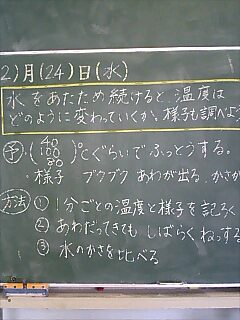 2)月(24)日(水)
水をあたため続けると、温度は
どのように変わっていくか、様子も調べよう
予・(40 100 80)℃ぐらいでふっとうする。
・様子 ブクブク あわが出る、かさが
方法 ①1分ごとの温度と様子を記ろく
②あわだってきてもしばらくねっする
③水のかさを比べる